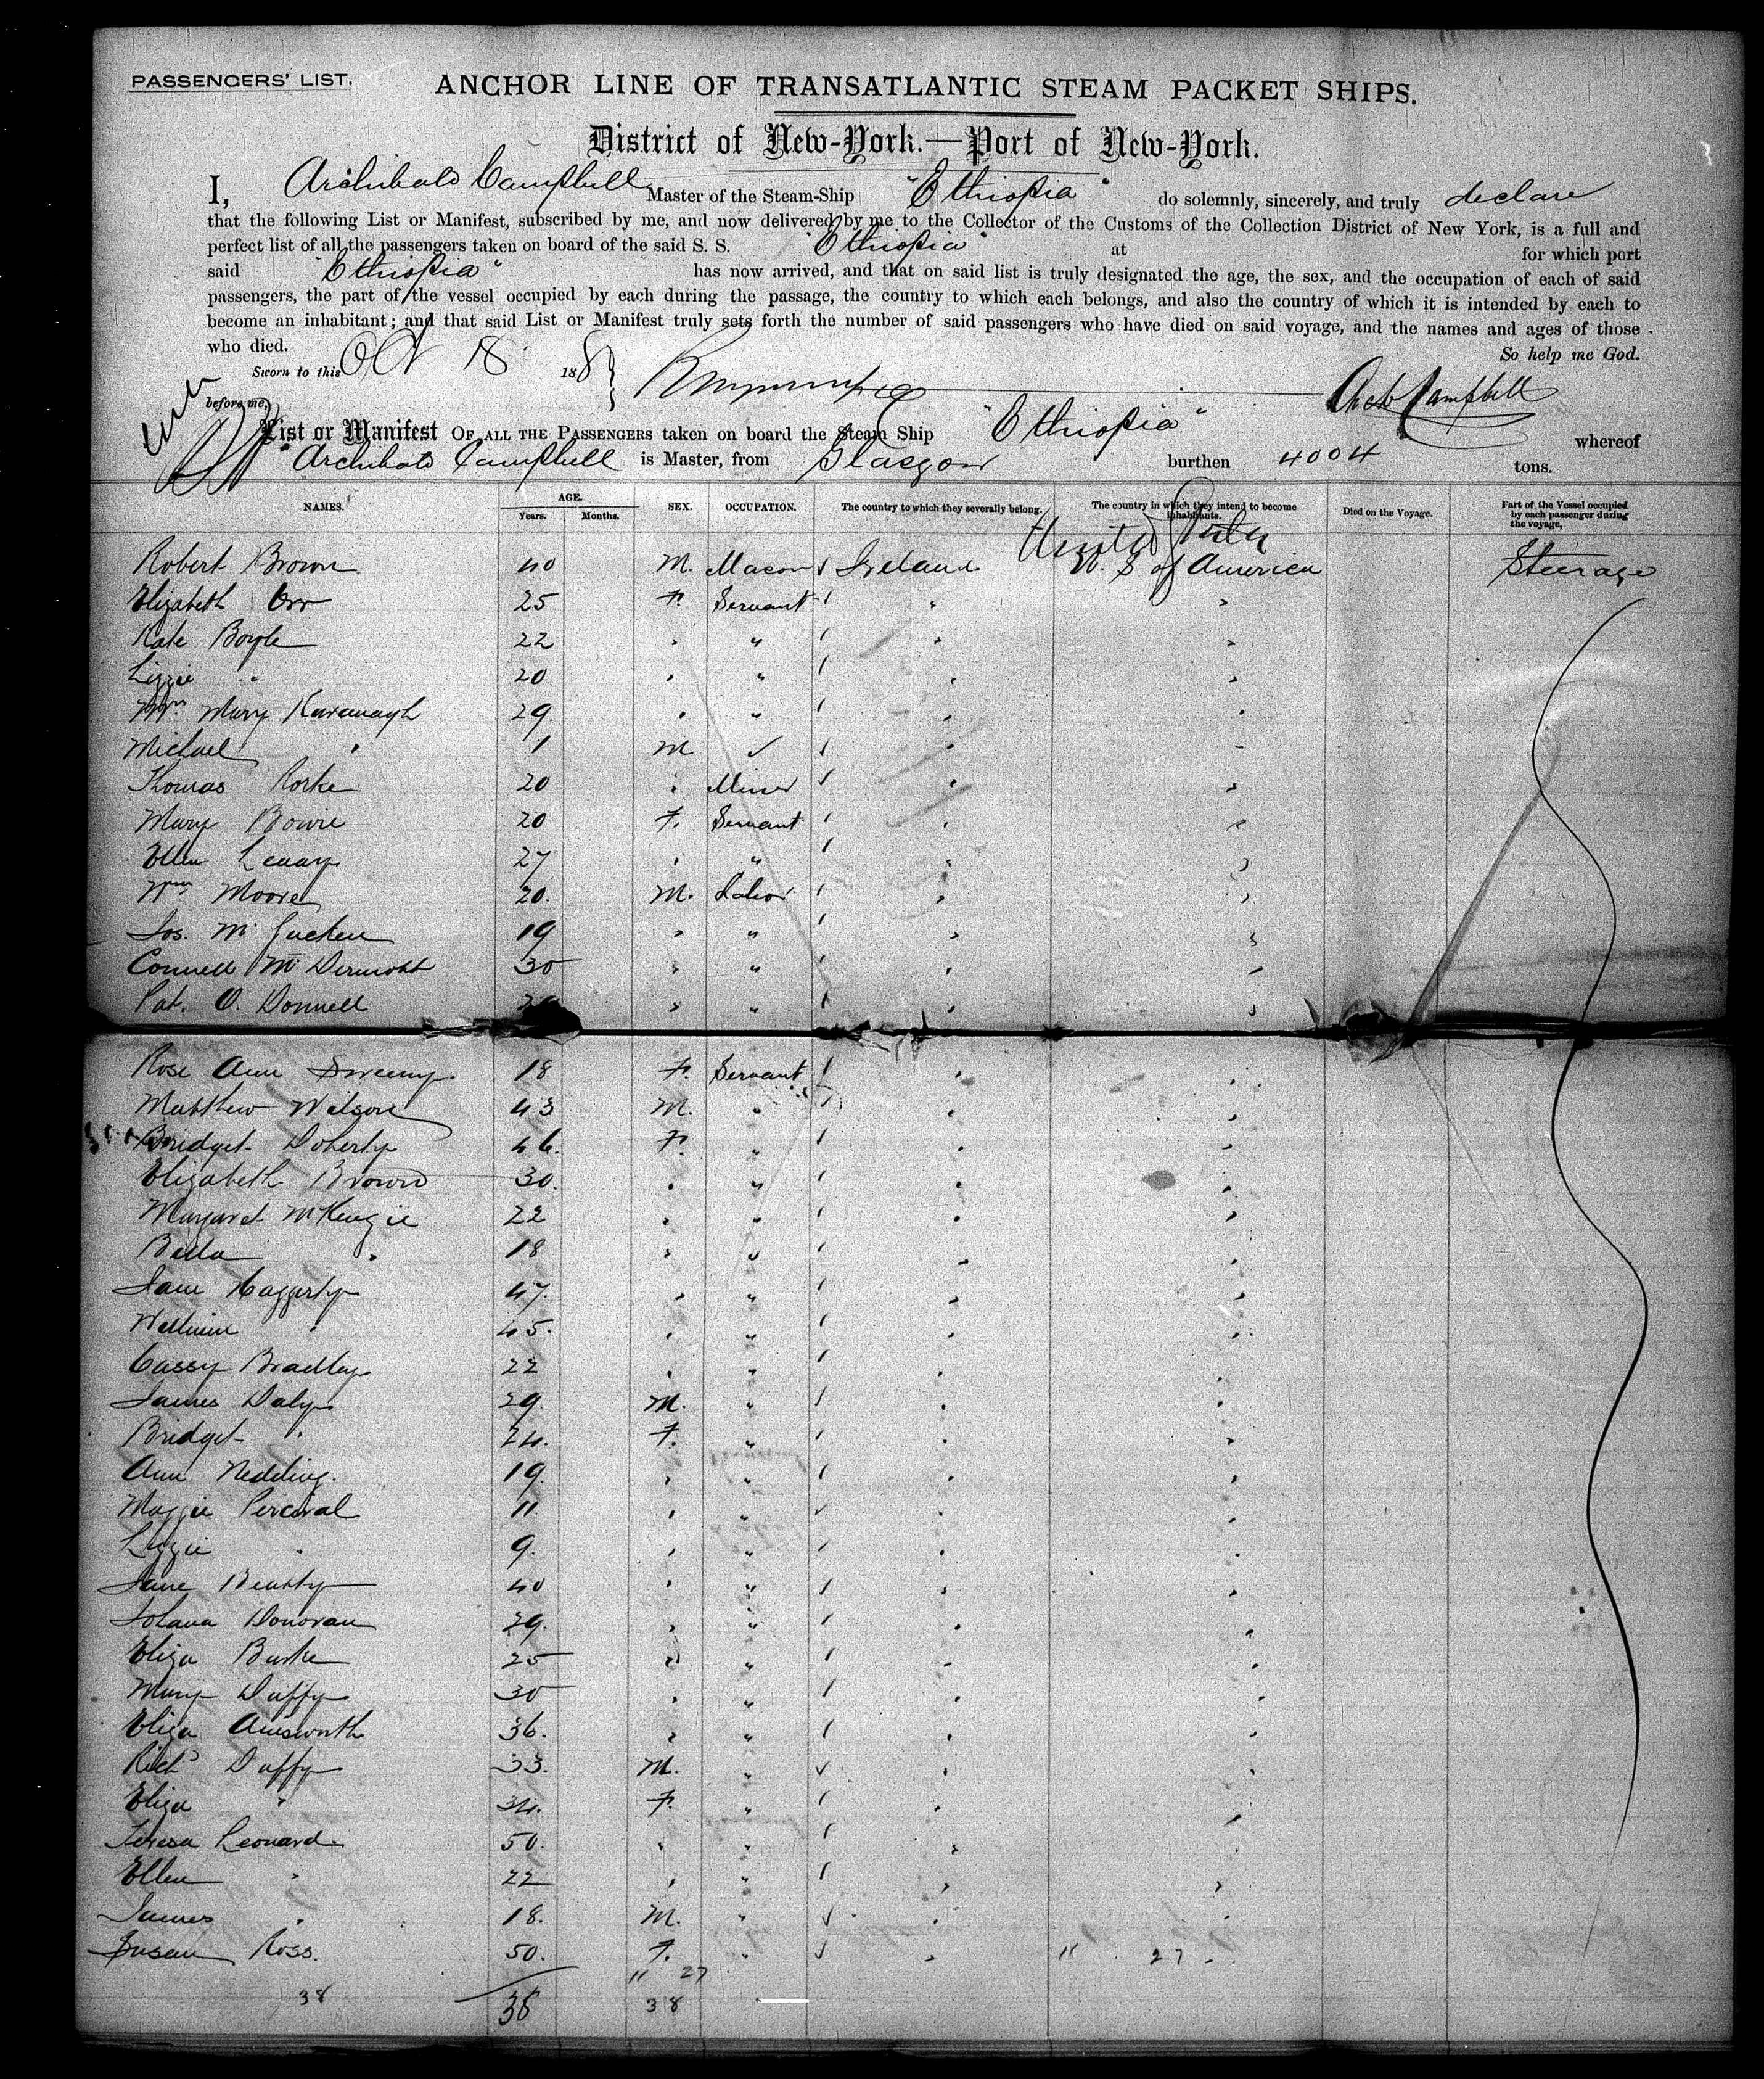 PASSENGERS' LIST. ANCHOR LINE OF TRANSATLANTIC STEAM PACKET SHIPS.
District of New-York.—Port of New-York.
I, Archibald Campbell Master of the Steam-Ship "Ethiopia" do solemnly, sincerely, and truly declare
that the following List or Manifest, subscribed by me, and now delivered by me to the Collector of the Customs of the Collection District of New York, is a full and
perfect list of all the passengers taken on board of the said S. S. "Ethiopia" at for which port
said "Ethiopia" has now arrived, and that on said list is truly designated the age, the sex, and the occupation of each of said
passengers, the part of the vessel occupied by each during the passage, the country to which each belongs, and also the country of which it is intended by each to
become an inhabitant; and that said List or Manifest truly sets forth the number of said passengers who have died on said voyage, and the names and ages of those
who died. So help me God.
Sworn to this Oct 18 188
before me, Arch Campbell
List or Manifest OF ALL THE PASSENGERS taken on board the Steam Ship "Ethiopia" whereof
Archibald Campbell is Master, from Glasgow burthen 4004 tons.
NAMES. AGE. Years. Months. SEX. OCCUPATION. The country to which they severally belong. The country in which they intend to become inhabitants. Died on the Voyage. Part of the Vessel occupied by each passenger during the voyage,
United States
Robert Brown 40 M. Mason Ireland U. S of America Steerage
Elizabeth Orr 25 F. Servant "
Kate Boyle 22 " "
Lizzie " 20 " "
Mrs Mary Kavanagh 29 " "
Michael " 1 M
Thomas Rorke 20 " Miner "
Mary Bowie 20 F. Servant "
Ellen 27 " "
Wm Moore 20. M. Labor "
Jos. Mc Gucken 19 " "
Connell Mc Dermott 30 " "
Pat. O. Donnell " "
Rose Ann Sweeny 18 F. Servant "
Matthew Wilson 43 M. "
Bridget Doherty 46. F. "
Elizabeth Brown 30. " "
Margaret McKenzie 22 " "
Bella " 18 " "
Jane Haggerty 47. " "
" 45. " "
Cassy Bradley 22 " "
James Daly 29. M. "
Bridget " 24. F. "
Ann Nedding. 19. " "
Maggie Percival 11. " "
Lizzie " 9. " "
Jane Beatty 40 " "
Johana Donovan 29. " "
Eliza Burke 25 " "
Mary Duffy 30 " "
Eliza Ainsworth 36. " "
Richd Duffy 33. M. "
Eliza " 34. F. "
Teresa Leonard 50. " "
Ellen " 22 " "
James " 18. M. "
Susan Ross. 50. F. " " 11 27
11 27
38 38 38